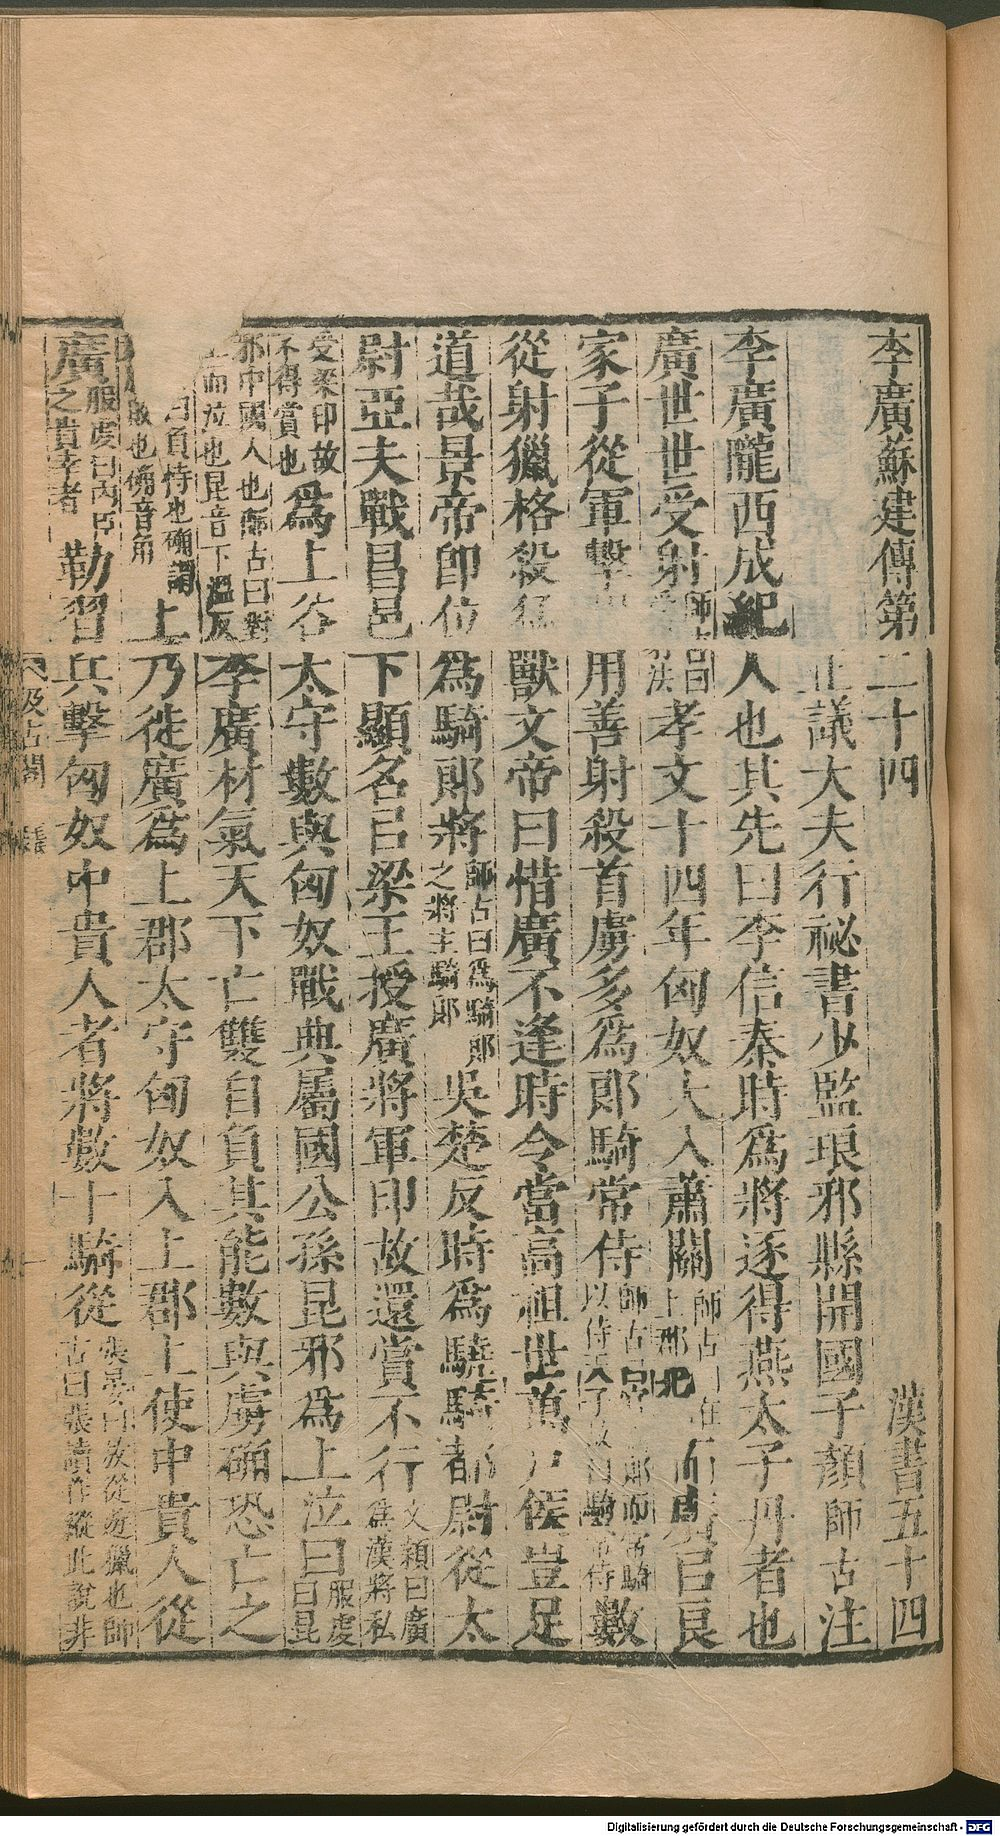 李廣蘇建傳第二十四 漢書五十四
正議大夫行祕書少監琅邪縣開國子顏師古注
李廣隴西成紀人也其先曰李信秦時爲將逐得燕太子丹者也
廣世世受射師古曰受射法孝文十四年匈奴大入蕭關師古曰在上郡北而廣㠯良
家子從軍擊胡用善射殺首虜多爲郞騎常侍師古曰官爲郞而常騎以侍天子故曰騎常侍數
從射獵格殺猛獸文帝曰惜廣不逢時令當高祖世萬戶侯豈足
道哉景帝卽位爲騎郞將師古曰爲騎郞之將主騎郞吳楚反時爲驍騎都尉從太
尉亞夫戰昌邑下顯名㠯梁王授廣將軍印故還賞不行文穎曰廣爲漢將私
受梁印故不得賞也爲上谷太守數與匈奴戰典屬國公孫昆邪爲上泣曰服虔曰昆
邪中國人也師古曰對上而泣也昆音下溫反李廣材氣天下亡雙自負其能數與虜确恐亡之
曰負恃也确謂敵也确音角上乃徙廣爲上郡太守匈奴入上郡上使中貴人從
廣服虔曰內臣之貴幸者勒習兵擊匈奴中貴人者將數十騎從張晏曰放從遊獵也師古曰張讀作縱此說非
汲古閣
一
Digitalisierung gefördert durch die Deutsche Forschungsgemeinschaft - DFG